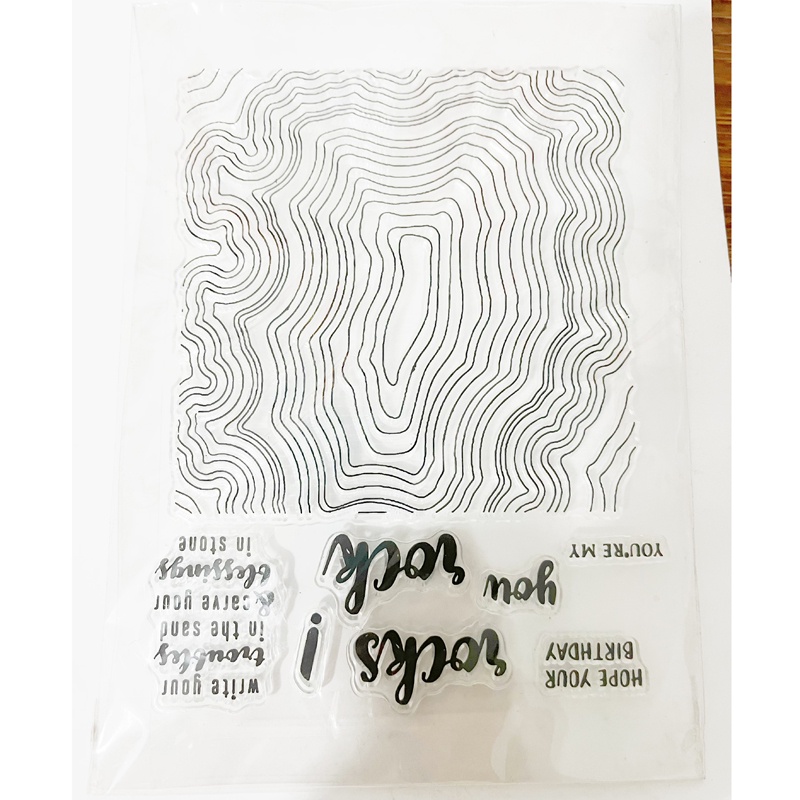 HOPE YOUR
BIRTHDAY
rocks
!
write your
troubles
in the sand
& carve your
blessings
in stone
you
YOU'RE MY
rock